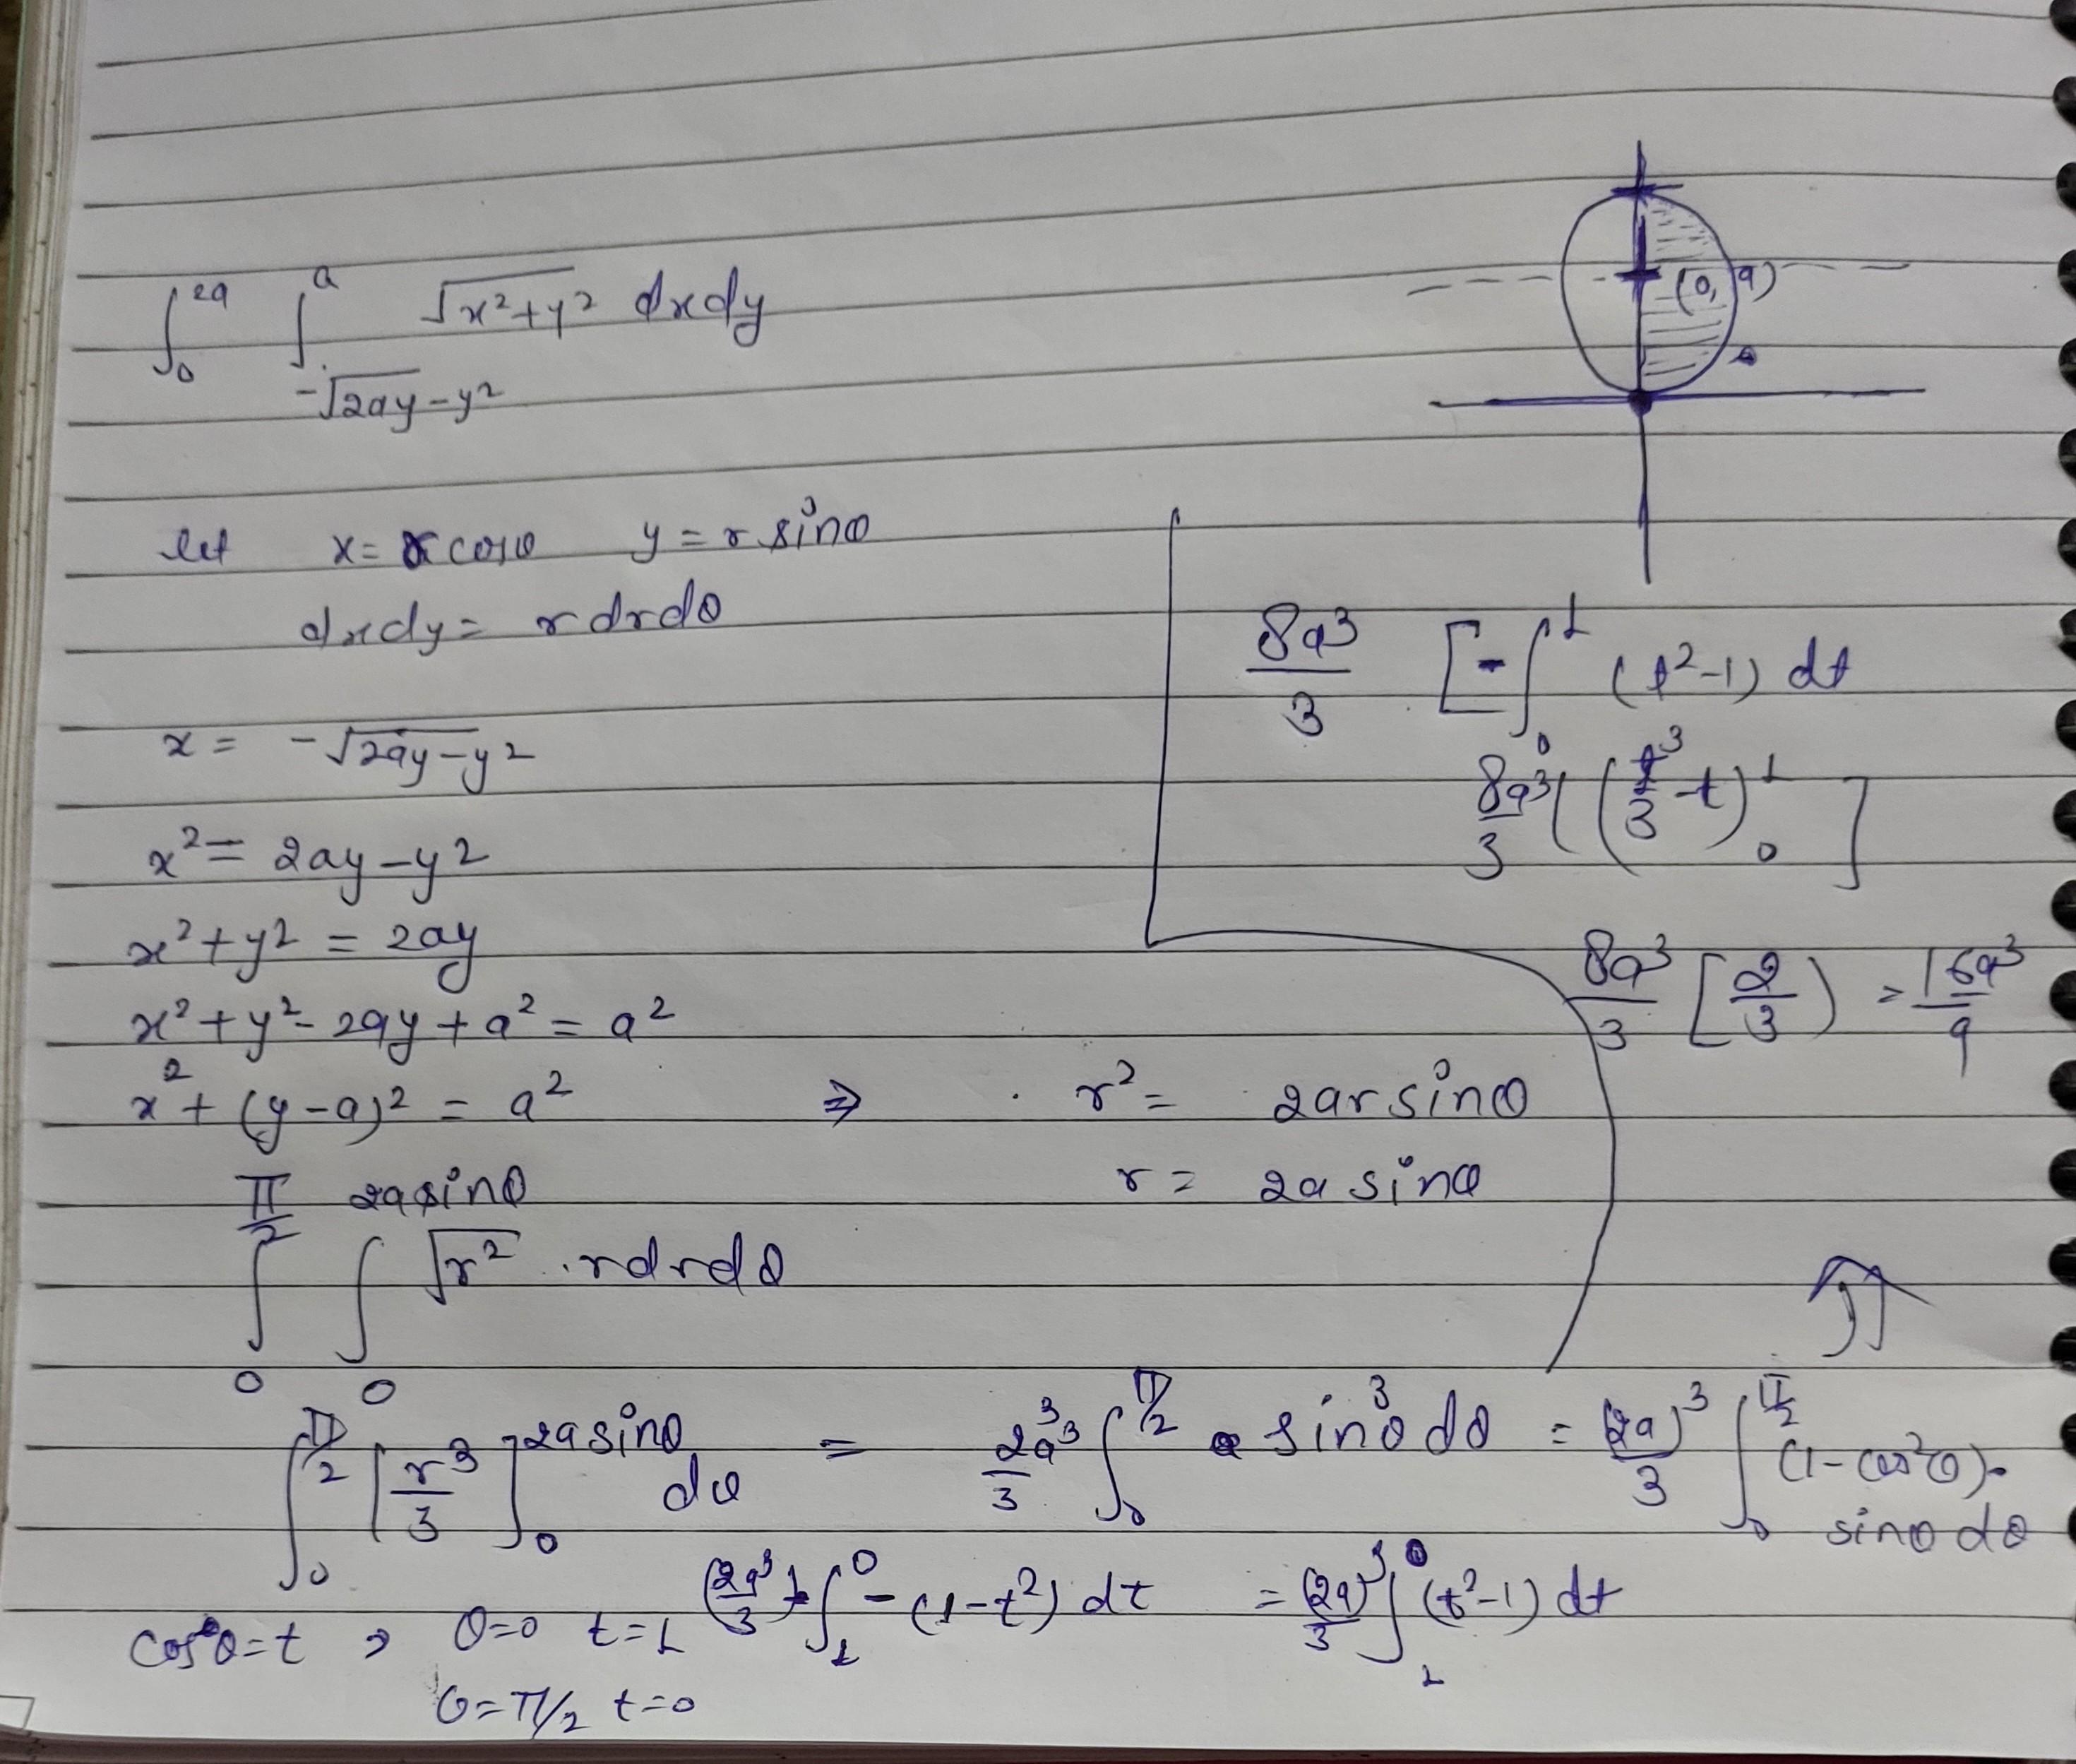 ∫₀^{2a} ∫_{-√(2ay-y²)}^{a} √(x²+y²) dxdy
(0, a)
let x = r cosθ y = r sinθ
dxdy = r drdθ
x = -√(2ay-y²)
x² = 2ay-y²
x²+y² = 2ay
x²+y²-2ay+a² = a²
x²+(y-a)² = a² ⇒ r² = 2ar sinθ
r = 2a sinθ
∫₀^{π/2} ∫₀^{2a sinθ} √r² . r dr dθ
∫₀^{π/2} [r³/3]₀^{2a sinθ} dθ = 2a³/3 ³ ∫₀^{π/2} sin³θ dθ = (2a)³/3 ∫₀^{π/2} (1-cos²θ). sinθ dθ
cosθ = t , θ=0 t=1 (2a³/3 ∫₁⁰ -(1-t²) dt = (2a)³/3 ∫₁⁰ (t²-1) dt
θ=π/2 t=0
⇑
8a³/3 [-∫₀¹ (t²-1) dt
8a³/3 ( (t³/3 - t)₀¹ ]
8a³/3 [2/3) = 16a³/9